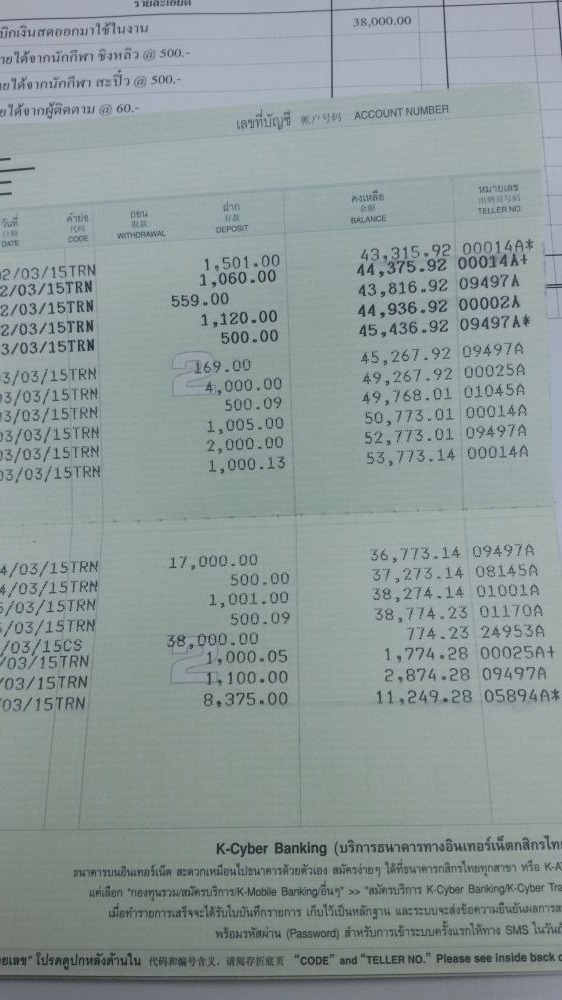 รายละเอียด
บิกเงินสดออกมาใช้ในงาน 38,000.00
ายได้จากนักกีฬา ชิงหลิว @ 500.-
ายได้จากนักกีฬา สะปิ๋ว @ 500.-
ายได้จากผู้ติดตาม @ 60.-
เลขที่บัญชี 帐户号码 ACCOUNT NUMBER
วันที่ คำย่อ ถอน ฝาก คงเหลือ หมายเลข
日期 代码 取款 存款 金额 出纳员号码
DATE CODE WITHDRAWAL DEPOSIT BALANCE TELLER NO.
02/03/15TRN 1,501.00 43,315.92 00014A*
2/03/15TRN 1,060.00 44,375.92 00014A+
2/03/15TRN 559.00 43,816.92 09497A
2/03/15TRN 1,120.00 44,936.92 00002A
3/03/15TRN 500.00 45,436.92 09497A*
03/03/15TRN 169.00 45,267.92 09497A
03/03/15TRN 4,000.00 49,267.92 00025A
03/03/15TRN 500.09 49,768.01 01045A
03/03/15TRN 1,005.00 50,773.01 00014A
03/03/15TRN 2,000.00 52,773.01 09497A
03/03/15TRN 1,000.13 53,773.14 00014A
4/03/15TRN 17,000.00 36,773.14 09497A
4/03/15TRN 500.00 37,273.14 08145A
5/03/15TRN 1,001.00 38,274.14 01001A
/03/15TRN 500.09 38,774.23 01170A
/03/15CS 38,000.00 774.23 24953A
/03/15TRN 1,000.05 1,774.28 00025A+
/03/15TRN 1,100.00 2,874.28 09497A
/03/15TRN 8,375.00 11,249.28 05894A*
K-Cyber Banking (บริการธนาคารทางอินเทอร์เน็ตกสิกรไทย
ธนาคารบนอินเทอร์เน็ต สะดวกเหมือนไปธนาคารด้วยตัวเอง สมัครง่ายๆ ได้ที่ธนาคารกสิกรไทยทุกสาขา หรือ K-A
แค่เลือก "กองทุนรวม/สมัครบริการ/K-Mobile Banking/อื่นๆ" >> "สมัครบริการ K-Cyber Banking/K-Cyber Tra
เมื่อทำรายการเสร็จจะได้รับใบบันทึกรายการ เก็บไว้เป็นหลักฐาน และระบบจะส่งข้อความยืนยันผลการส
พร้อมรหัสผ่าน (Password) สำหรับการเข้าระบบครั้งแรกให้ทาง SMS ในวันถ
ยเลข" โปรดดูปกหลังด้านใน 代码和编号含义，请阅存折底页 "CODE" and "TELLER NO." Please see inside back c